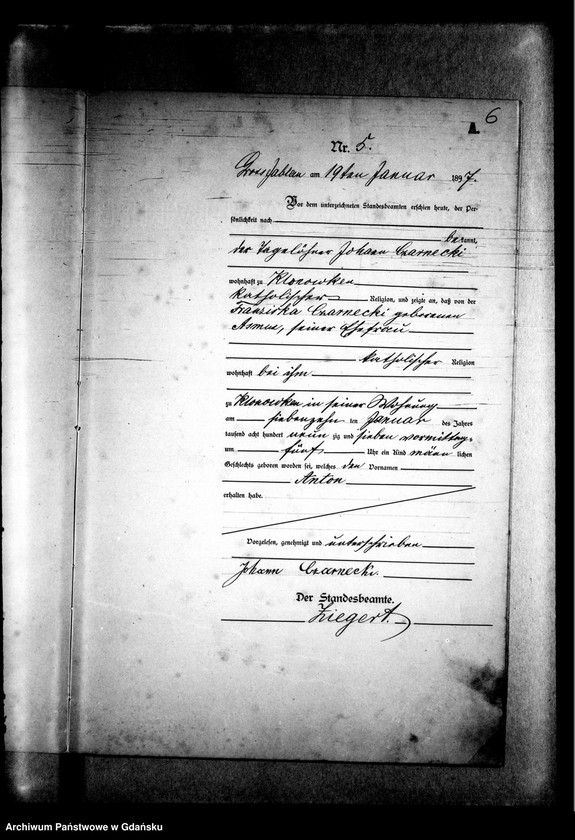 6
A.
Nr. 5.
Gross Jablau am 19ten Januar 1897.
Vor dem unterzeichneten Standesbeamten erschien heute, der Per-
sönlichkeit nach
bekannt,
der Tagelöhner Johann Czarnecki
wohnhaft zu Klonowken
katholischer Religion, und zeigte an, daß von der
Franziska Czarnecki geborenen
Asmus, seiner Ehefrau
katholischer Religion
wohnhaft bei ihm
zu Klonowken in seiner Wohnung
am siebenzehn ten Januar des Jahres
tausend acht hundert neun zig und sieben vormittag-
um fünf Uhr ein Kind männ lichen
Geschlechts geboren worden sei, welches den Vornamen
Anton
erhalten habe.
Vorgelesen, genehmigt und unterschrieben
Johann Czarnecki.
Der Standesbeamte.
Ziegert.
Archiwum Państwowe w Gdańsku